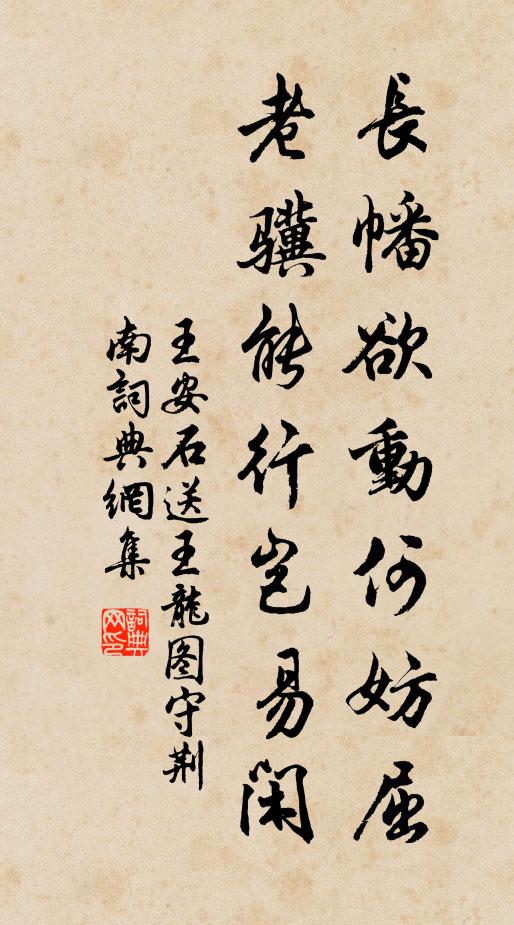 長幡欲動何妨屈
老驥能行豈易閑
王安石送王龍图守荆
南詞典網集
詞典
网印